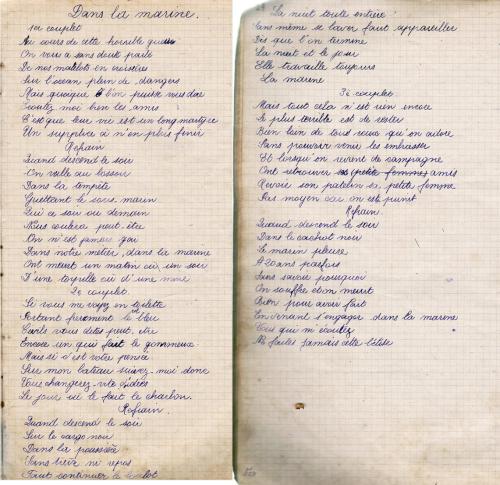 Dans la marine.
1er couplet
Au cours de cette horrible guerre
On vous a sans doute parlé
De nos matelots en croisière
Sur l'océan plein de dangers
Mais quoique l'on puisse vous dire
Ecoutez moi bien les amis
C'est que leur vie est un long martyre
Un supplice à n'en plus finir
Refrain
Quand descend le soir
On veille au bossoir
Dans la tempête
Guettant le sous marin
Qui ce soir ou demain
Nous coulera peut être
On n'est jamais gai
Dans notre métier, dans la marine
Ont meurt un matin où un soir
D'une torpille où d'une mine
2e couplet
Si vous me voyez en toilette
Portant fièrement le bleu
Vous dites peut être
Encore un qui fait le gommeux
Mais si c'est votre pensée
Sur mon bateau suivez-moi donc
Vous changerez vite d'idées
Le jour où le fait le charbon.
Refrain.
Quand descend le soir
Sur le cargo noir
Dans la poussière
Sans trève ni repos
Faut continuer le boulot
La nuit toute entière
Sans même se laver faut appareiller
Dès que l'on termine
La nuit et le jour
Elle travaille toujours
La marine
3e couplet
Mais tout cela n'est rien encore
Le plus terrible est de rester
Bien loin de tous ceux qu'on adore
Sans pouvoir venir les embrasser
Et lorsqu'on revient de campagne
Ont retrouver ses (petite femmes) amis
Revoir son patelin sa petite femme
Pas moyen car on est punit
Refrain.
Quand descend le soir
Dans le cachot noir
Le marin pleure
A 20 ans parfois
Sans savoir pourquoi
On souffre et on meurt
Bien pour avoir fait
En venant s'engager dans la marine
Vous qui m'écoutez
Ne faites jamais cette bêtise